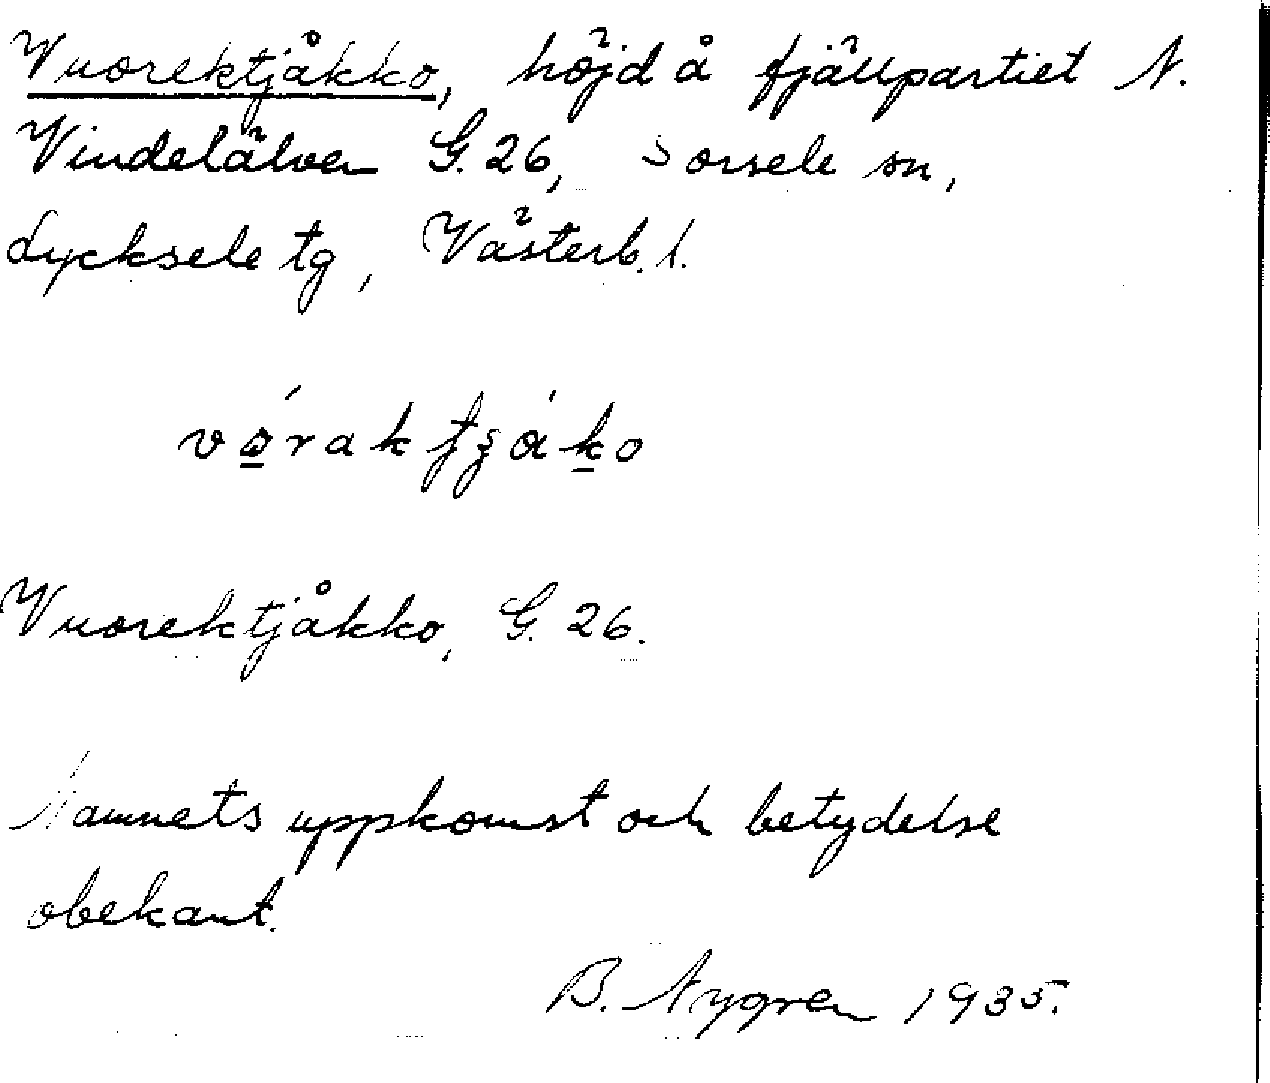 Vuorektjåkko, höjd å fjällpartiet N.
Vindelälven G. 26, Sorsele sn,
Lycksele tg, Västerb. l.
Vuorektjåkko, G. 26.
Namnets uppkomst och betydelse
obekant.
B. Nygren 1935.